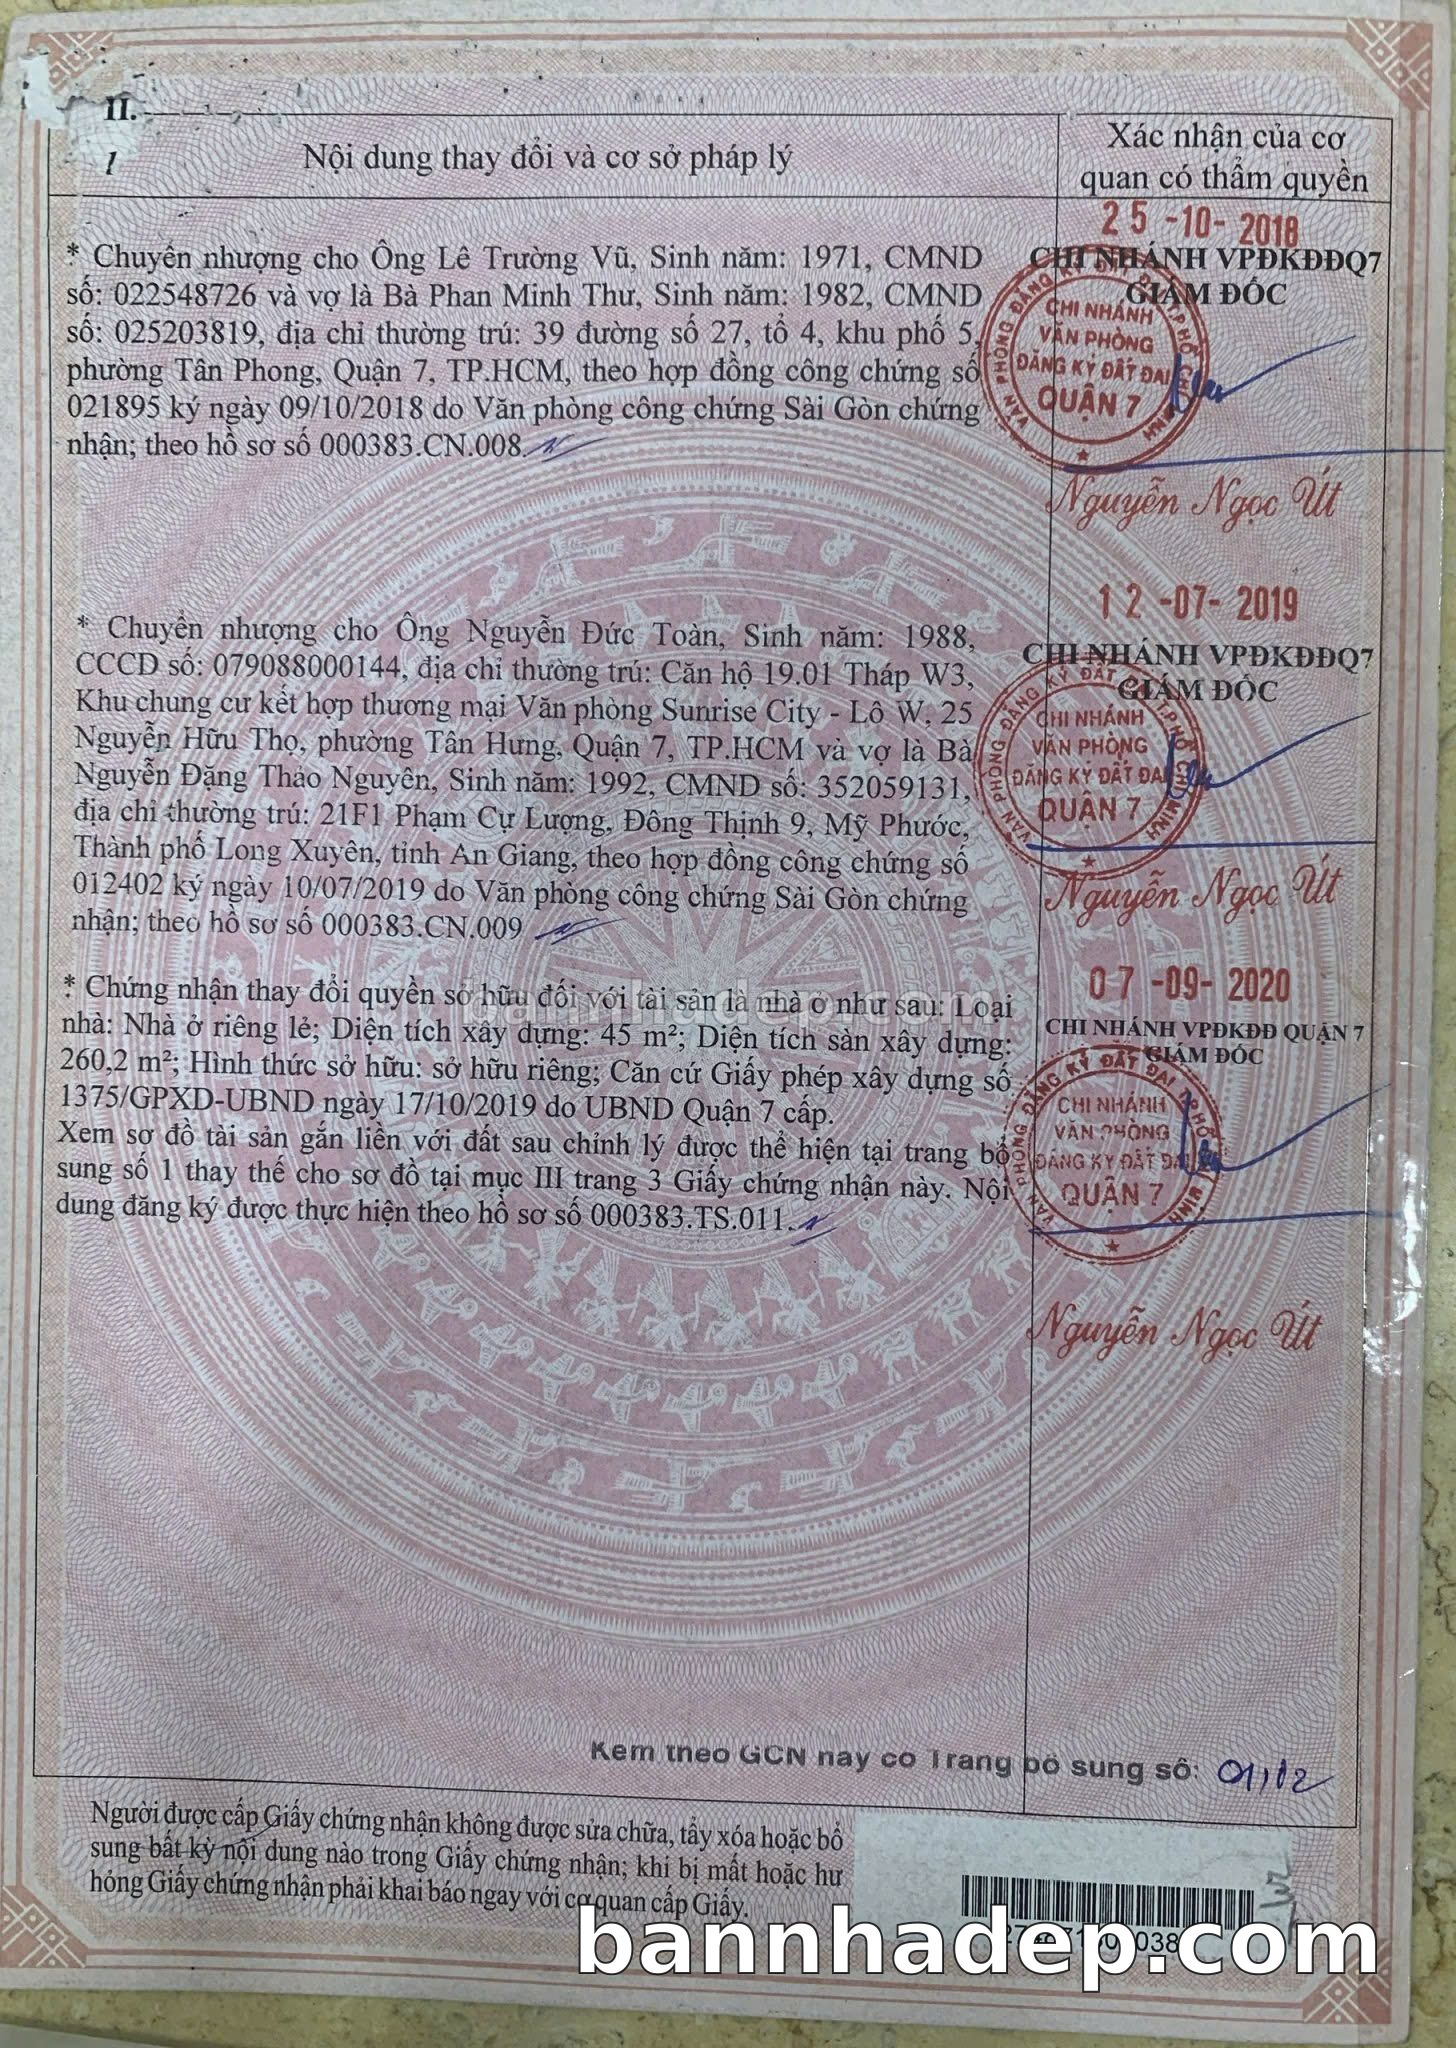 II.
Nội dung thay đổi và cơ sở pháp lý
Xác nhận của cơ
quan có thẩm quyền
* Chuyển nhượng cho Ông Lê Trường Vũ, Sinh năm: 1971, CMND
số: 022548726 và vợ là Bà Phan Minh Thư, Sinh năm: 1982, CMND
số: 025203819, địa chỉ thường trú: 39 đường số 27, tổ 4, khu phố 5,
phường Tân Phong, Quận 7, TP.HCM, theo hợp đồng công chứng số
021895 ký ngày 09/10/2018 do Văn phòng công chứng Sài Gòn chứng
nhận; theo hồ sơ số 000383.CN.008.
25 -10- 2018
CHI NHÁNH VPĐKĐĐQ7
GIÁM ĐỐC
VĂN PHÒNG ĐĂNG KÝ ĐẤT ĐAI T.PHỐ CHÍ MINH
CHI NHÁNH
VĂN PHÒNG
ĐĂNG KÝ ĐẤT ĐAI
QUẬN 7
Nguyễn Ngọc Út
* Chuyển nhượng cho Ông Nguyễn Đức Toàn, Sinh năm: 1988,
CCCD số: 079088000144, địa chỉ thường trú: Căn hộ 19.01 Tháp W3,
Khu chung cư kết hợp thương mại Văn phòng Sunrise City - Lô W, 25
Nguyễn Hữu Thọ, phường Tân Hưng, Quận 7, TP.HCM và vợ là Bà
Nguyễn Đặng Thảo Nguyên, Sinh năm: 1992, CMND số: 352059131,
địa chỉ thường trú: 21F1 Phạm Cự Lượng, Đông Thịnh 9, Mỹ Phước,
Thành phố Long Xuyên, tỉnh An Giang, theo hợp đồng công chứng số
012402 ký ngày 10/07/2019 do Văn phòng công chứng Sài Gòn chứng
nhận; theo hồ sơ số 000383.CN.009
12 -07- 2019
CHI NHÁNH VPĐKĐĐQ7
GIÁM ĐỐC
VĂN PHÒNG ĐĂNG KÝ ĐẤT T.PHỐ CHÍ MINH
CHI NHÁNH
VĂN PHÒNG
ĐĂNG KÝ ĐẤT ĐAI
QUẬN 7
Nguyễn Ngọc Út
* Chứng nhận thay đổi quyền sở hữu đối với tài sản là nhà ở như sau: Loại
nhà: Nhà ở riêng lẻ; Diện tích xây dựng: 45 m²; Diện tích sàn xây dựng:
260,2 m²; Hình thức sở hữu: sở hữu riêng; Căn cứ Giấy phép xây dựng số
1375/GPXD-UBND ngày 17/10/2019 do UBND Quận 7 cấp.
Xem sơ đồ tài sản gắn liền với đất sau chỉnh lý được thể hiện tại trang bổ
sung số 1 thay thế cho sơ đồ tại mục III trang 3 Giấy chứng nhận này. Nội
dung đăng ký được thực hiện theo hồ sơ số 000383.TS.011.
bannhadep.com
07 -09- 2020
CHI NHÁNH VPĐKĐĐ QUẬN 7
GIÁM ĐỐC
VĂN PHÒNG ĐĂNG KÝ ĐẤT ĐAI T.PHỐ MINH
CHI NHÁNH
VĂN PHÒNG
ĐĂNG KÝ ĐẤT ĐAI
QUẬN 7
Nguyễn Ngọc Út
Kèm theo GCN này có Trang bổ sung số: 01,02
Người được cấp Giấy chứng nhận không được sửa chữa, tẩy xóa hoặc bổ
sung bất kỳ nội dung nào trong Giấy chứng nhận; khi bị mất hoặc hư
hỏng Giấy chứng nhận phải khai báo ngay với cơ quan cấp Giấy.
bannhadep.com